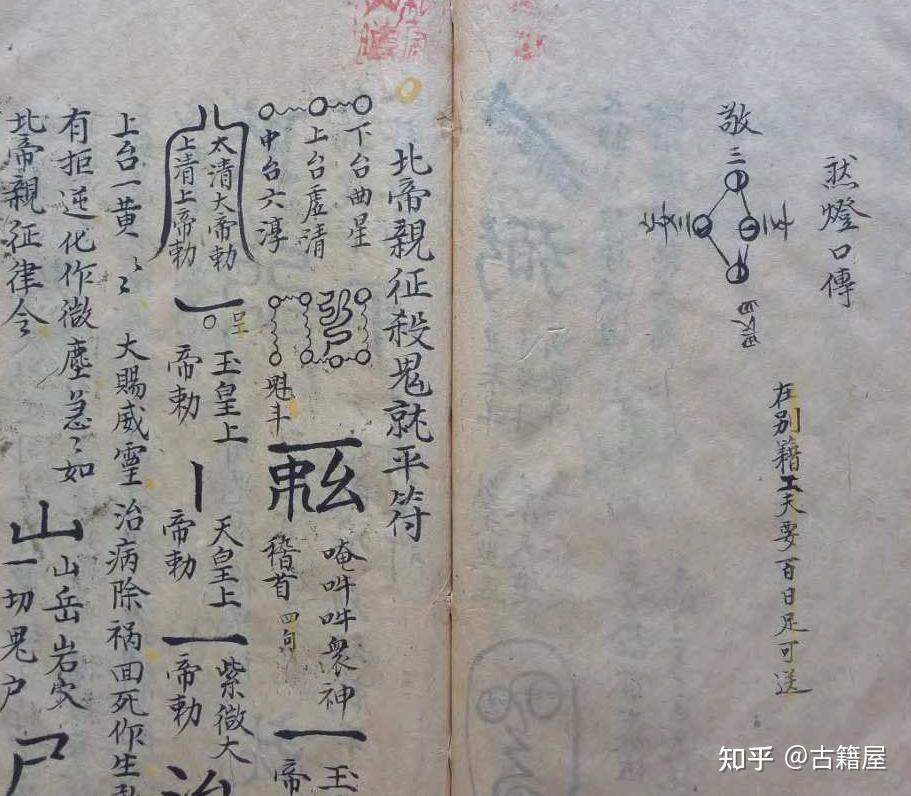 燈口傳
敬
三
在别籍工夫要百日足可送
北帝親征殺鬼就平符
下台曲星
上台虛清
中台六淳
魁斗
唵吽吽衆神
稽首四句
玉
帝
太清大帝勅
上清上帝勅
玉皇上
帝勅
天皇上
帝勅
紫微大
帝勅
治
上台一黄〻〻
大賜威霊治病除祸回死作生
有拒逆化作微塵急〻如
北帝親征律令
山
山岳岩
一切鬼户
尸
知乎 @古籍屋